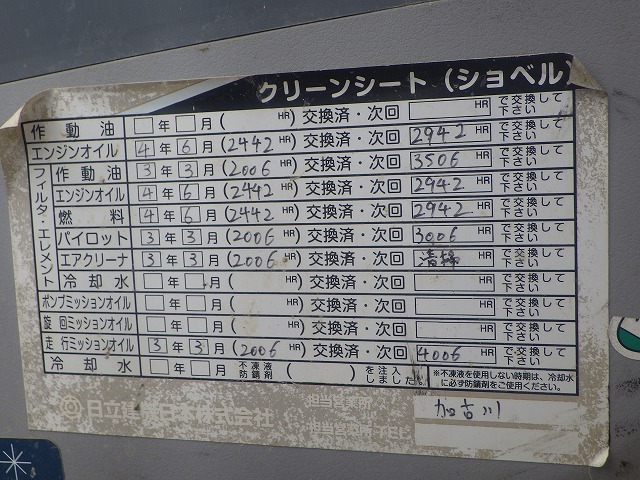 クリーンシート（ショベル）
作動油 □年□月( HR)交換済・次回 HR で交換して下さい
エンジンオイル 4年6月(2442HR)交換済・次回 2942HR で交換して下さい
フィルタ・エレメント
作動油 3年3月(2006HR)交換済・次回 3506HR で交換して下さい
エンジンオイル 4年6月(2442HR)交換済・次回 2942HR で交換して下さい
燃料 4年6月(2442HR)交換済・次回 2942HR で交換して下さい
パイロット 3年3月(2006HR)交換済・次回 3006HR で交換して下さい
エアクリーナ 3年3月(2006HR)交換済・次回 清掃HR で交換して下さい
冷却水 □年□月( HR)交換済・次回 HR で交換して下さい
ポンプミッションオイル □年□月( HR)交換済・次回 HR で交換して下さい
旋回ミッションオイル □年□月( HR)交換済・次回 HR で交換して下さい
走行ミッションオイル 3年3月(2006HR)交換済・次回 4006HR で交換して下さい
冷却水 □年□月 不凍液 防錆剤( )を注入しました。 ※不凍液を使用しない時期は、冷却水に必ず防錆剤をご使用ください。
日立建機 式会社
加古川